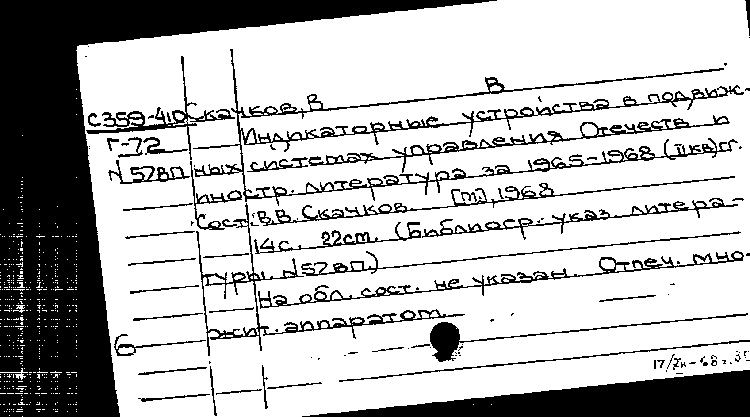 В
С359-410 Скачков, В
Г-72 Индикаторные устройства в подвиж-
N578п ных системах управления Отечеств и
иностр. литература за 1965-1968 (II кв) гг.
Сост. В.В. Скачков. [М], 1968
14с. 22см. (Библиогр. указ. литера-
туры. N578п.)
На обл. сост. не указан. Отпеч. мно-
жит. аппаратом
6